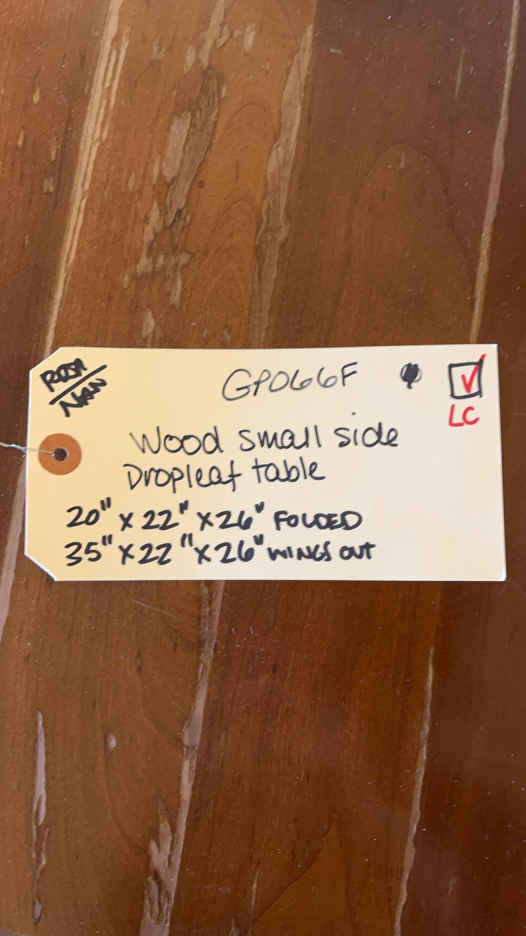 ROSA
NAN
GP066F
LC
Wood small side
Dropleaf table
20" x 22" x 26" FOLDED
35" x 22" x 26" WINGS OUT